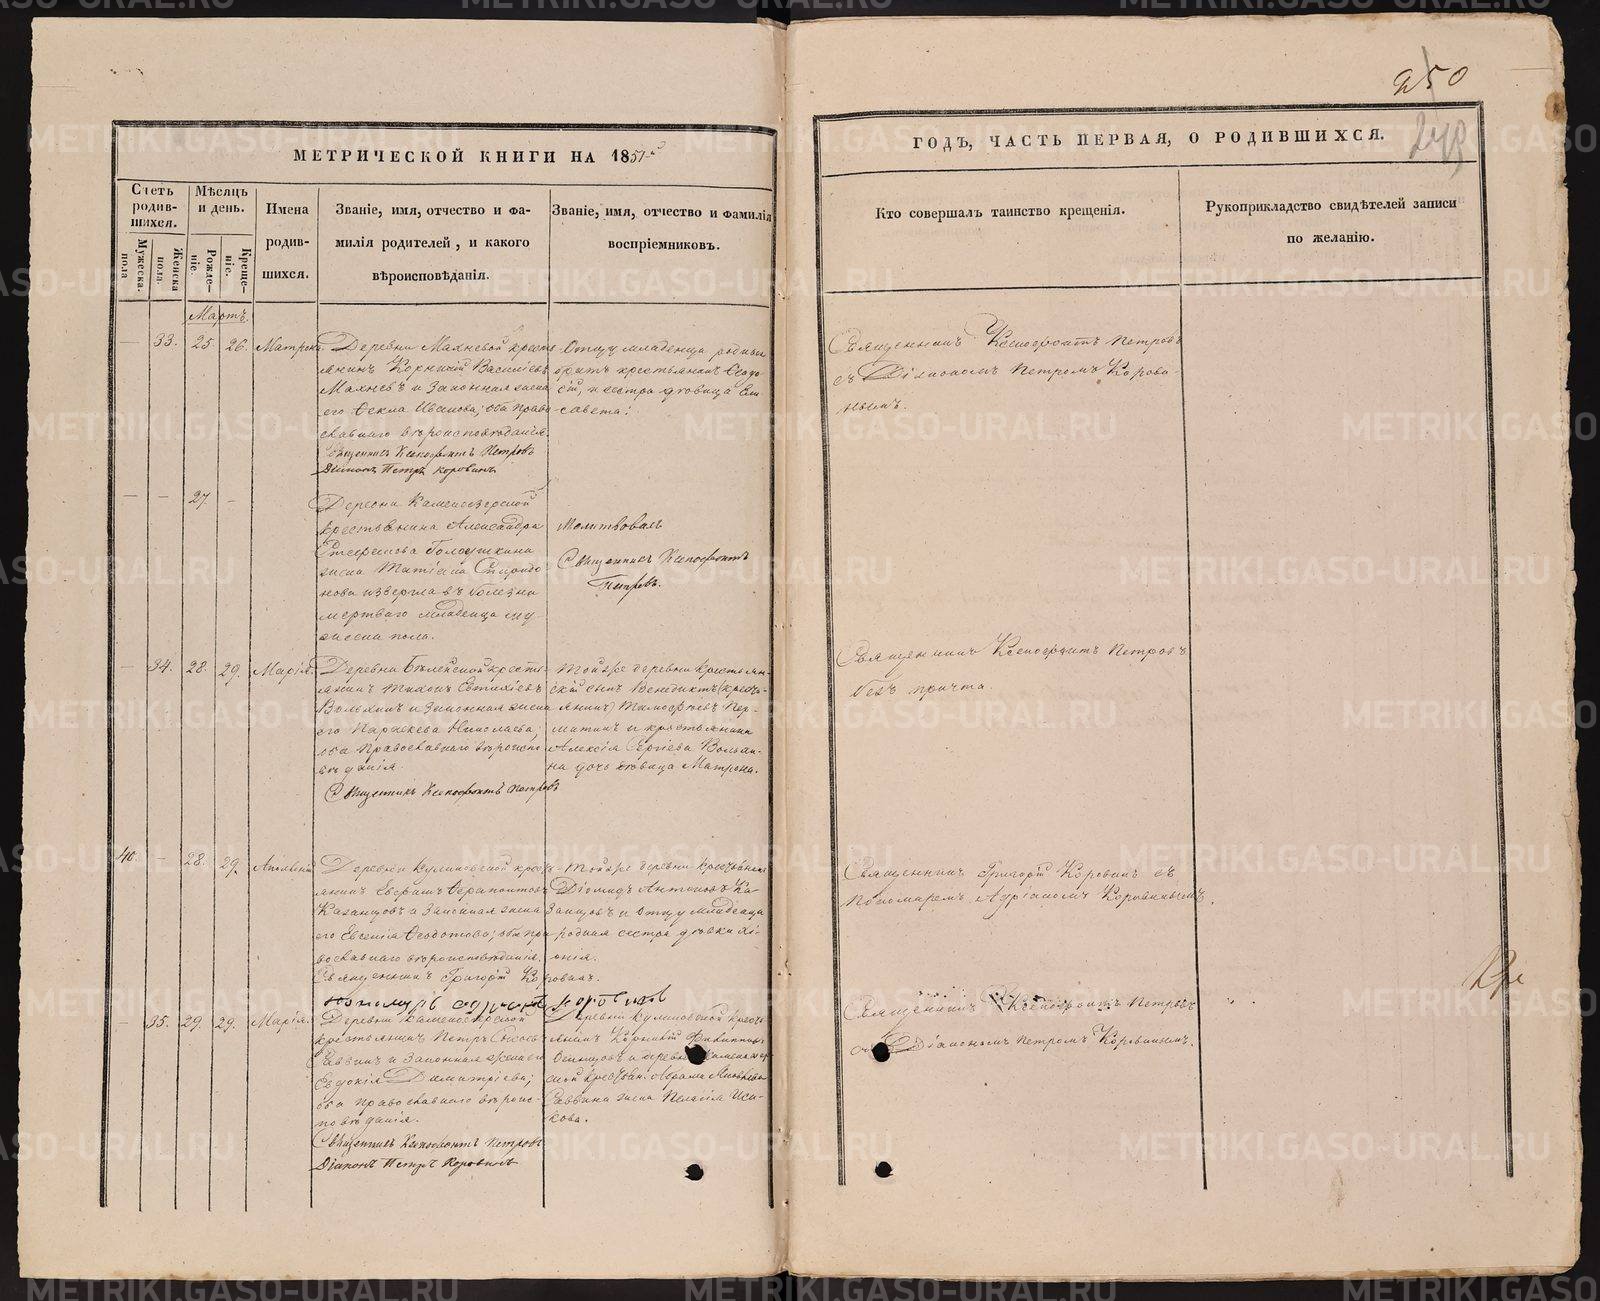 250
МЕТРИЧЕСКОЙ КНИГИ НА 1851й
ГОДЪ, ЧАСТЬ ПЕРВАЯ, О РОДИВШИХСЯ.
Счетъ родив-
шихся.
Мужеска пола
Женска пола.
Мѣсяцъ
и день.
Рожде-
ніе.
Креще-
ніе.
Имена
родив-
шихся.
Званіе, имя, отчество и фа-
милія родителей, и какого
вѣроисповѣданія.
Званіе, имя, отчество и фамилія
воспріемниковъ.
Кто совершалъ таинство крещенія.
Рукоприкладство свидѣтелей записи
по желанію.
Мартъ.
— 33. 25. 26. Матрона.
Деревни Махневой кресть-
янинъ Корнилій Василіевъ
Махневъ и законная жена
его Ѳекла Иванова; оба право
славнаго вѣроисповѣданія.
Священникъ Ксенофонтъ Петровъ
Діаконъ Петръ Коровинъ
Отцу младенца родный
братъ крестьянинъ Ѳеодо
сій, и сестра дѣвица Ели
савета.
Священникъ Ксенофонтъ Петровъ
съ Діакономъ Петромъ Корови-
нымъ.
— — 27 —
Деревни Каменоозерской
крестьянина Александра
Стефанова Голоушкина
жена Татіана Спиридо
нова извергла въ болезни
мертваго младенца му-
жеска пола.
Молитвовалъ
Священникъ Ксенофонтъ
Петровъ.
— 34. 28. 29. Марія.
Деревни Белейской кресть-
янинъ Тихонъ Евтихіевъ
и законная жена
его Параскева Николаева;
оба Православнаго вѣроиспо-
вѣданія.
Священникъ Ксенофонтъ Петровъ
Той же деревни крестьян-
скій сынъ Венедиктъ
Тимофѣевъ Пер-
мякинъ и крестьянина
Алексія Сергіева
на дочь дѣвица Матрона.
Священникъ Ксенофонтъ Петровъ
безъ причта.
40. — 28. 29.
Деревни Куликовской крест-
янинъ Ѳерапонтовъ
Казанцовъ и законная жена
его Евгенія Ѳеодотова; оба пра
вославнаго вѣроисповѣданія.
Священникъ Григорій Коровинъ.
Коровинъ
Той же деревни крестьянинъ
Діомидъ Антоновъ Ка-
занцовъ и отцу младенца
родная сестра дѣвка Хі-
онія.
Священникъ Григорій Коровинъ съ
Пономаремъ Адріаномъ Коровинымъ.
— 35. 29. 29. Марія.
Деревни Каменоозерской
крестьянинъ Петръ
Саввинъ и законная жена его
Евдокія Димитріева;
оба православнаго вѣроис-
повѣданія.
Священникъ Ксенофонтъ Петровъ
Діаконъ Петръ Коровинъ
Деревни Куликовской крест-
янинъ Корнилій Филипповъ
Казанцовъ и деревни Каменоозер
ской крестьян. Абрама Яковлева
Саввина жена Пелагія Иса-
кова.
Священникъ Ксенофонтъ Петровъ
съ Діакономъ Петромъ Коровинымъ.